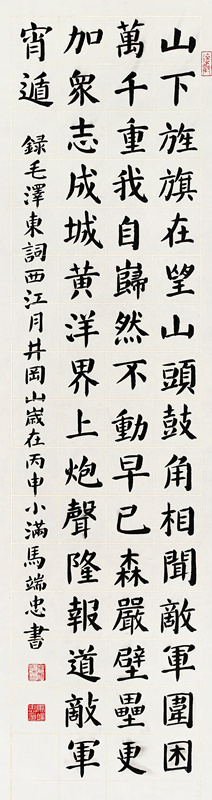 山下旌旗在望山頭鼓角相聞敵軍圍困
萬千重我自巋然不動早已森嚴壁壘更
加衆志成城黃洋界上炮聲隆報道敵軍
宵遁
録毛澤東詞西江月井岡山嵗在丙申小滿馬端忠書